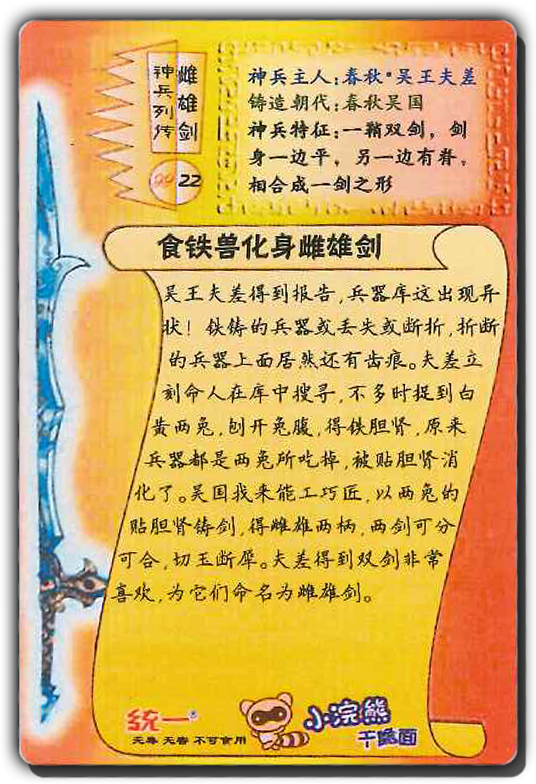 神兵列传
雌雄剑
22
神兵主人:春秋·吴王夫差
铸造朝代:春秋吴国
神兵特征:一鞘双剑，剑
身一边平，另一边有脊，
相合成一剑之形
食铁兽化身雌雄剑
吴王夫差得到报告,兵器库这出现异
状！铁铸的兵器或丢失或断折,折断
的兵器上面居然还有齿痕。夫差立
刻命人在库中搜寻,不多时捉到白
黄两兔,刨开兔腹,得铁胆肾,原来
兵器都是两兔所吃掉,被贴胆肾消
化了。吴国找来能工巧匠,以两兔的
贴胆肾铸剑,得雌雄两柄,两剑可分
可合,切玉断犀。夫差得到双剑非常
喜欢,为它们命名为雌雄剑。
统一®
无毒 无害 不可食用
小浣熊
干脆面